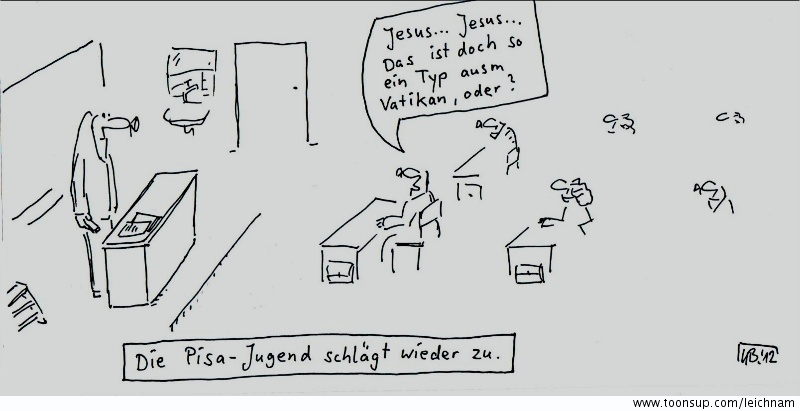 Jesus... Jesus...
Das ist doch so
ein Typ ausm
Vatikan, oder?
Die Pisa-Jugend schlägt wieder zu.
HB.'12
www.toonsup.com/leichnam